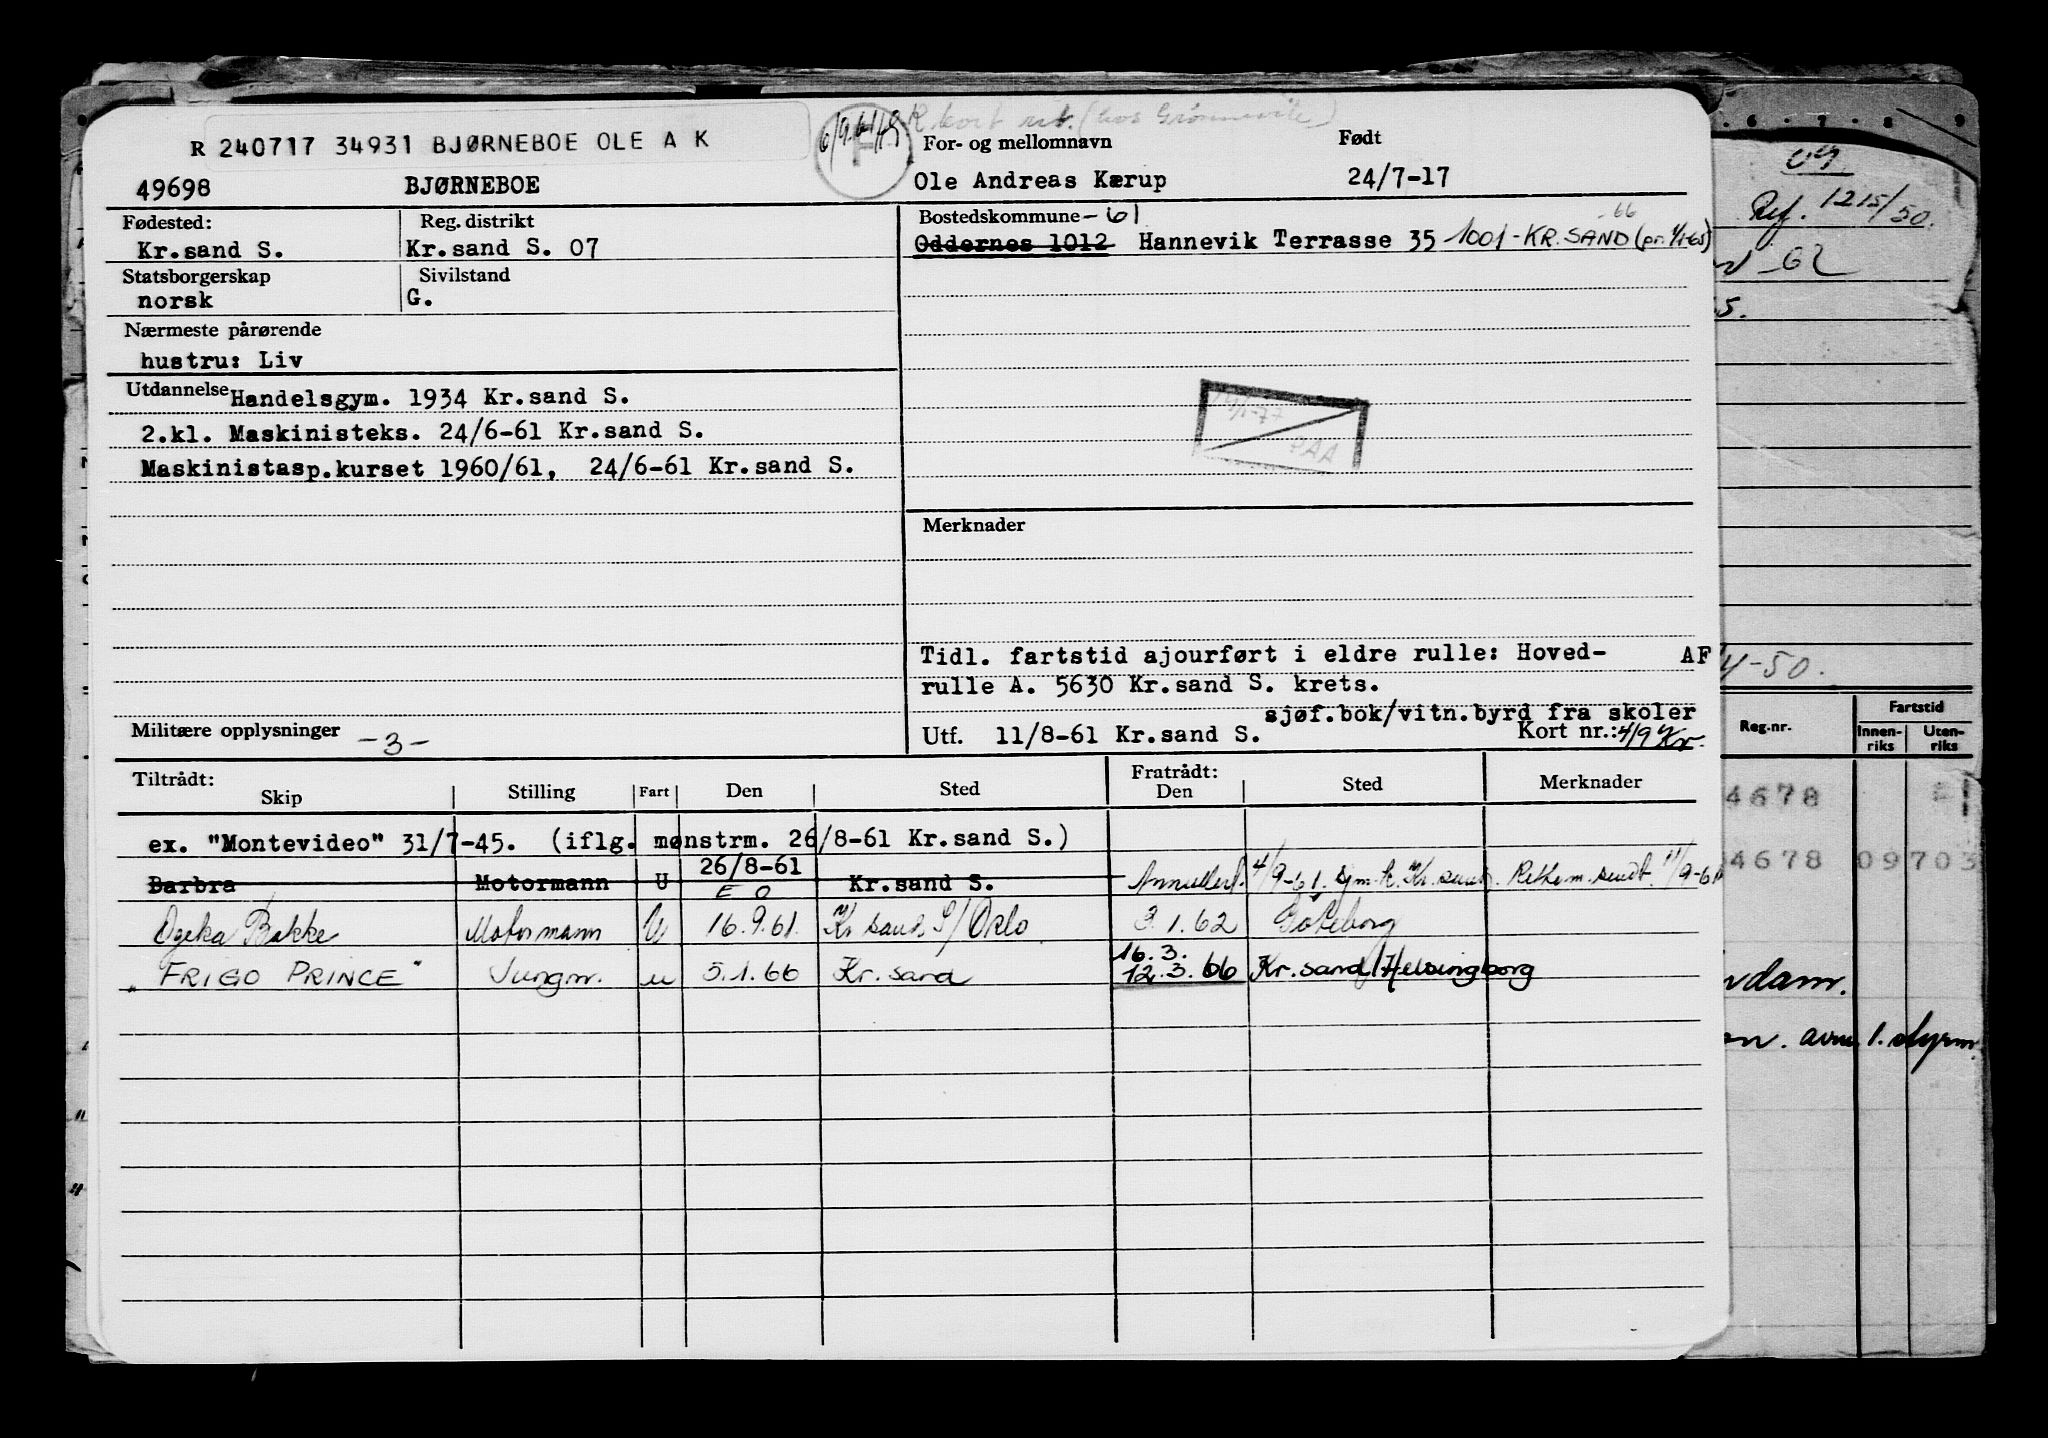 R 240717 34931 BJØRNEBOE OLE A K
6/9.61
For- og mellomnavn
Født
49698 BJØRNEBOE
Ole Andreas Kærup
24/7-17
Fødested: Reg. distrikt
Kr.sand S. Kr.sand S. 07
Statsborgerskap Sivilstand
norsk G.
Nærmeste pårørende
hustru: Liv
Utdannelse Handelsgym. 1934 Kr.sand S.
2.kl. Maskinisteks. 24/6-61 Kr.sand S.
Maskinistasp.kurset 1960/61, 24/6-61 Kr.sand S.
Militære opplysninger -3-
Bostedskommune -61
-66
Oddernes 1012 Hannevik Terrasse 35 1001-KR.SAND (pr. 1/1-65)
PAA
Merknader
Tidl. fartstid ajourført i eldre rulle: Hoved- AF
rulle A. 5630 Kr.sand S. krets.
sjøf.bok/vitn.byrd fra skoler
Utf. 11/8-61 Kr.sand S. Kort nr.: 4/9 Kr.
Tiltrådt: Fratrådt:
Skip Stilling Fart Den Sted Den Sted Merknader
ex. "Montevideo" 31/7-45. (iflg. mønstrm. 26/8-61 Kr.sand S.)
Barbra Motormann U 26/8-61 Kr.sand S. Annullert. 4/9-61. Sjm.k. Kr.sand. 11/9-61
E O
Ogeka Bakke Motormann U 16.9.61. Kr sand S/Oslo 3.1.62 Göteborg
16.3.
"FRIGO PRINCE" Jungm. u 5.1.66 Kr.sand 12.3.66 Kr.sand/Helsingborg
6 7 8 9
09
Ref. 1215/50.
-62
5.
4-50.
Reg.nr. Fartstid
Innen-riks Uten-riks
4678
4678 09703
dam.
1. styrm.